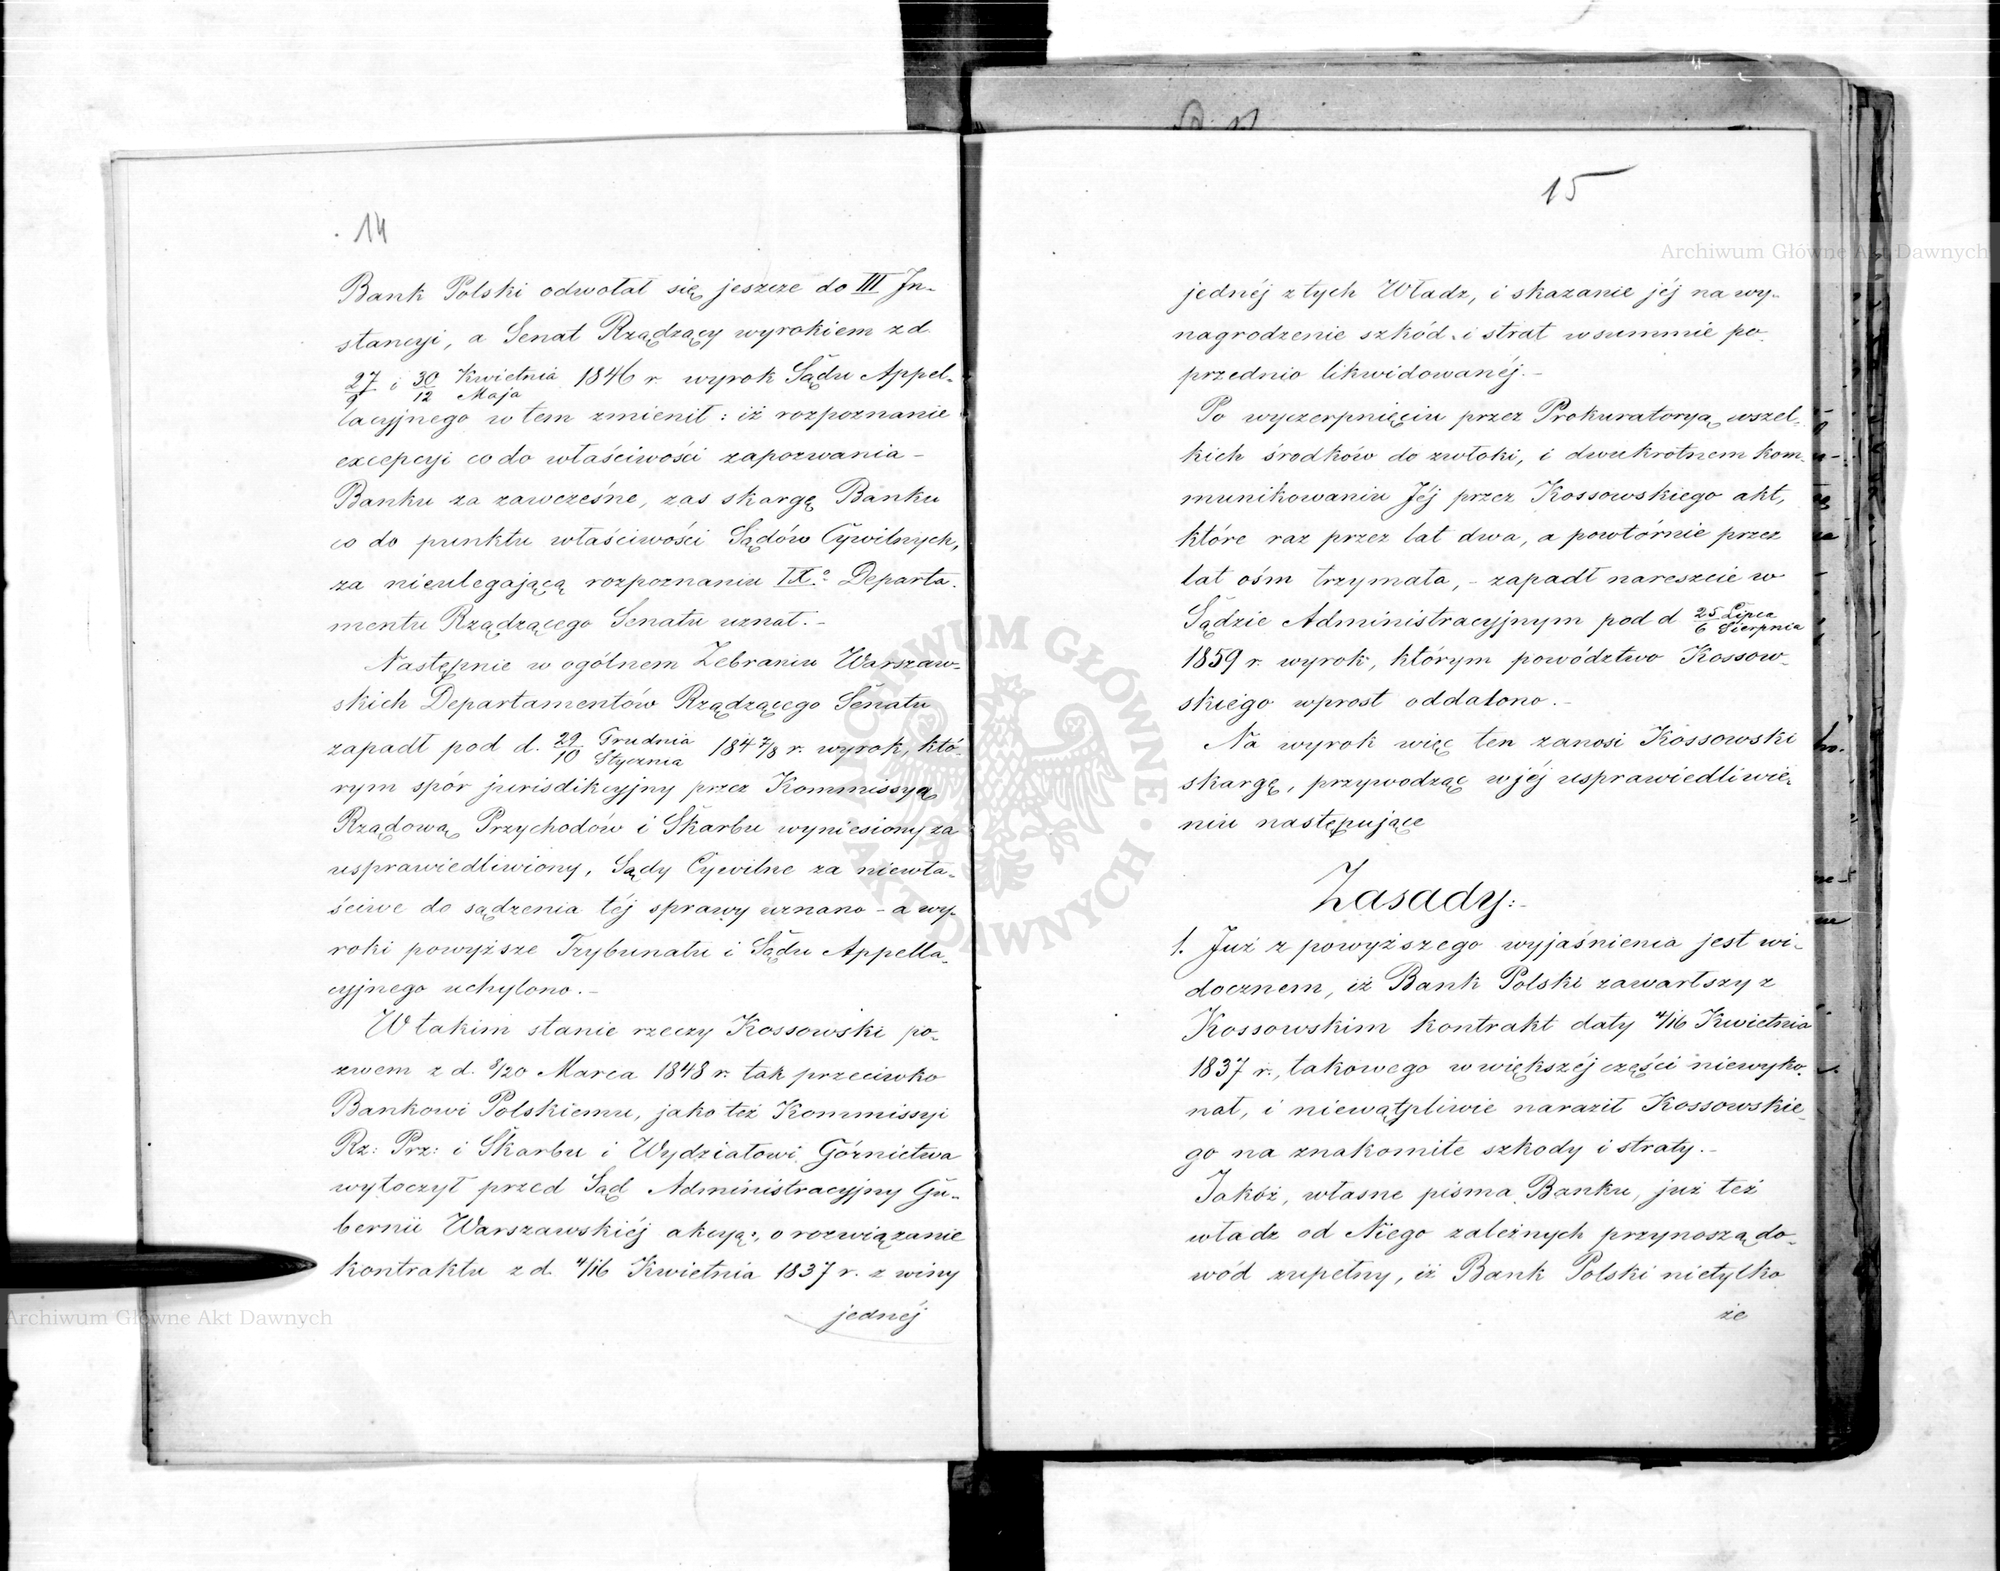 14
Bank Polski odwołał się jeszcze do III In-
stancyi, a Senat Rządzący wyrokiem z d.
27/9 i 30/12 Kwietnia/Maja 1846 r. wyrok Sądu Appel-
lacyjnego w tem zmienił: iż rozpoznanie
excepcyi co do właściwości zapozwania -
Banku za zawcześne, zas skargę Banku
co do punktu właściwości Sądów Cywilnych,
za nieulegającą rozpoznaniu IX.o Departa-
mentu Rządzącego Senatu uznał. -
Następnie w ogólnem Zebraniu Warszaw-
skich Departamentów Rządzącego Senatu
zapadł pod d. 29/10 Grudnia/Stycznia 184 7/8 r. wyrok, któ-
rym spór jurisdikcyjny przez Kommissyą
Rządową Przychodów i Skarbu wyniesiony za
usprawiedliwiony, Sądy Cywilne za niewła-
ściwe do sądzenia téj sprawy uznano - a wy-
roki powyższe Trybunału i Sądu Appella-
cyjnego uchylono. -
W takim stanie rzeczy Kossowski po-
zwem z d. 8/20 Marca 1848 r. tak przeciwko
Bankowi Polskiemu, jako też Kommissyi
Rz: Prz: i Skarbu i Wydziałowi Górnictwa
wytoczył przed Sąd Administracyjny Gu-
bernii Warszawskiéj akcyą, o rozwiązanie
kontraktu z d. 4/16 Kwietnia 1837 r. z winy
jednéj
15
jednéj z tych Władz, i skazanie jéj na wy-
nagrodzenie szkód i strat w summie po-
przednio likwidowanéj. -
Po wyczerpnięciu przez Prokuratoryą wszel-
kich środków do zwłoki, i dwukrotnem kom-
munikowaniu Jéj przez Kossowskiego akt,
które raz przez lat dwa, a powtórnie przez
lat ośm trzymała, - zapadł nareszcie w
Sądzie Administracyjnym pod d. 25/6 Lipca/Sierpnia
1859 r. wyrok, którym powództwo Kossow-
skiego wprost oddalono. -
Na wyrok więc ten zanosi Kossowski
skargę, przywodząc w jéj usprawiedliwie-
niu następujące
Zasady: -
1. Już z powyższego wyjaśnienia jest wi-
docznem, iż Bank Polski zawartszy z
Kossowskim kontrakt daty 4/16 Kwietnia
1837 r., takowego w większéj części niewyko-
nał, i niewątpliwie naraził Kossowskie-
go na znakomite szkody i straty. -
Jakóż, własne pisma Banku, już też
władz od Niego zależnych przynoszą do-
wód zupełny, iż Bank Polski nietylko
że
Archiwum Główne Akt Dawnych
Archiwum Główne Akt Dawnych
ARCHIWUM GŁÓWNE AKT DAWNYCH